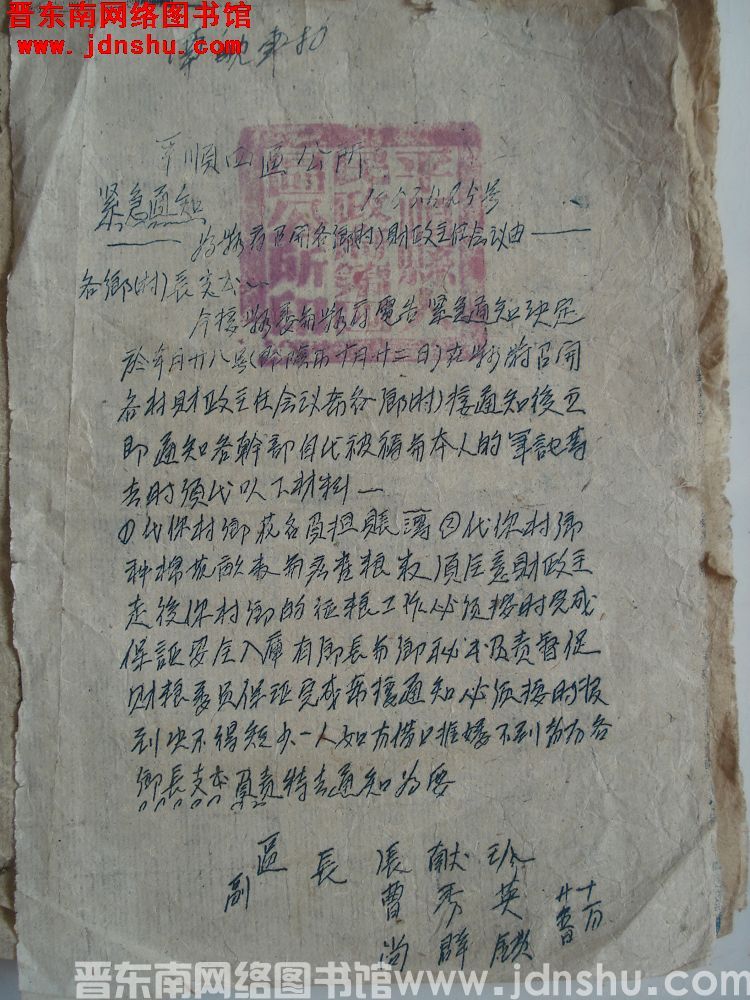 晋东南网络图书馆
www.jdnshu.com
平順四區公所
緊急通知
为縣府召開各鄉(村)財政主任会议由
各鄉(村)長支书
今接縣委與縣府電告緊急通知决定
於本月廿八号(即陰历十月廿二日)在縣府召開
各村財政主任会议希各鄉(村)接通知後立
即通知各幹部自代被褥與本人的筆記等
去时须代以下材料
①代你村鄉花名負担賬簿②代你村鄉
种棉花畝数與产量粮数须注意財政主
走後你村鄉的征粮工作必须按时完成
保証安全入庫有鄉長與鄉秘书負责督促
財粮委員保証完成希接通知必须按时报
到决不得短少一人如有借口推諉不到者有各
鄉長支书負责特去通知为要
區長 張献珍
副 曹秀英
尚群鎖
十一月
晋东南网络图书馆 www.jdnshu.com